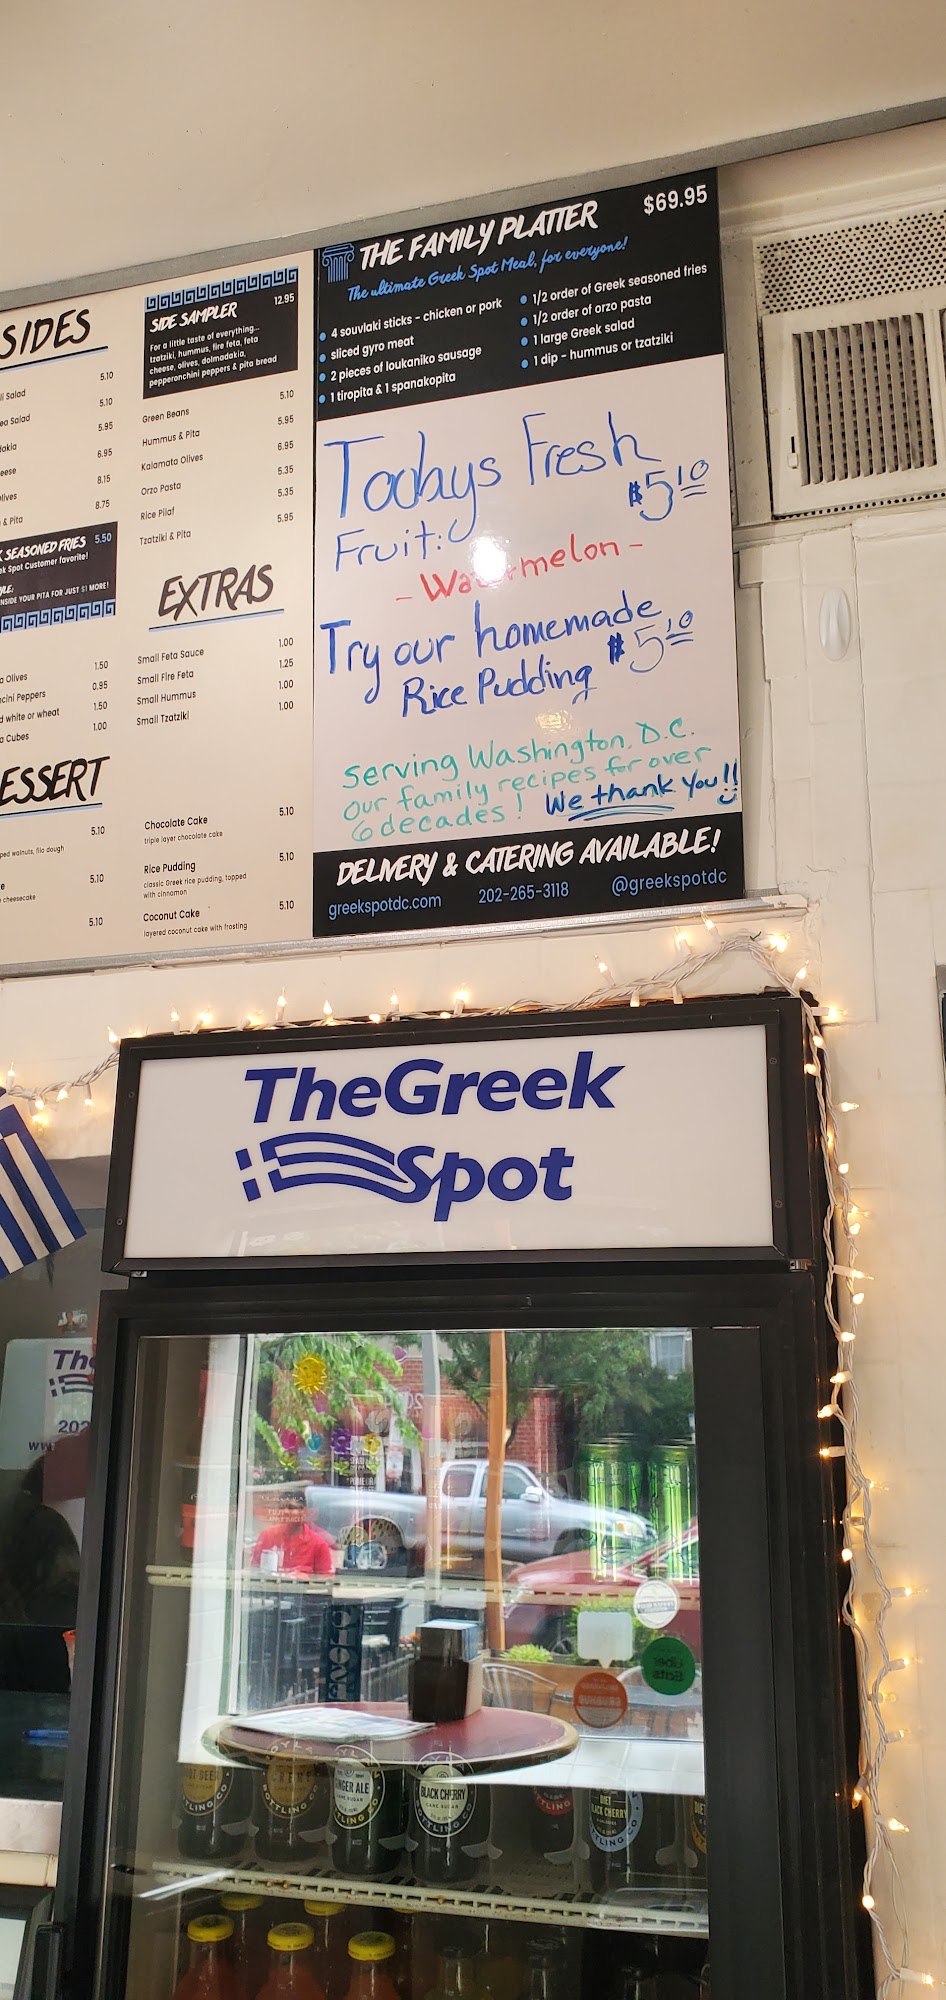 SIDES
Salad 5.10
Salad 5.10
5.95
6.95
8.15
& Pita 8.75
SEASONED FRIES 5.50
Spot Customer favorite!
INSIDE YOUR PITA FOR JUST $1 MORE!
Olives 1.50
Peppers 0.95
white or wheat 1.50
Cubes 1.00
5.10
walnuts, filo dough
5.10
cheesecake
5.10
SIDE SAMPLER 12.95
For a little taste of everything...
tzatziki, hummus, fire feta, feta
cheese, olives, dolmadakia,
pepperonchini peppers & pita bread
Green Beans 5.10
Hummus & Pita 5.95
Kalamata Olives 6.95
Orzo Pasta 5.35
Rice Pilaf 5.35
Tzatziki & Pita 5.95
EXTRAS
Small Feta Sauce 1.00
Small Fire Feta 1.25
Small Hummus 1.00
Small Tzatziki 1.00
Chocolate Cake 5.10
triple layer chocolate cake
Rice Pudding 5.10
classic Greek rice pudding, topped
with cinnamon
Coconut Cake 5.10
layered coconut cake with frosting
THE FAMILY PLATTER $69.95
The ultimate Greek Spot Meal, for everyone!
• 4 souvlaki sticks - chicken or pork
• sliced gyro meat
• 2 pieces of loukaniko sausage
• 1 tiropita & 1 spanakopita
• 1/2 order of Greek seasoned fries
• 1/2 order of orzo pasta
• 1 large Greek salad
• 1 dip - hummus or tzatziki
Todays Fresh
Fruit: $5.10
- Watermelon -
Try our homemade
Rice Pudding $5.10
serving Washington, D.C.
our family recipes for over
6 decades! We thank you!!
DELIVERY & CATERING AVAILABLE!
greekspotdc.com 202-265-3118 @greekspotdc
TheGreek
Spot
202
GINGER ALE
CANE SUGAR
BOTTLING CO
BLACK CHERRY
CANE SUGAR
BOTTLING CO
DIET
BLACK CHERRY
DIET